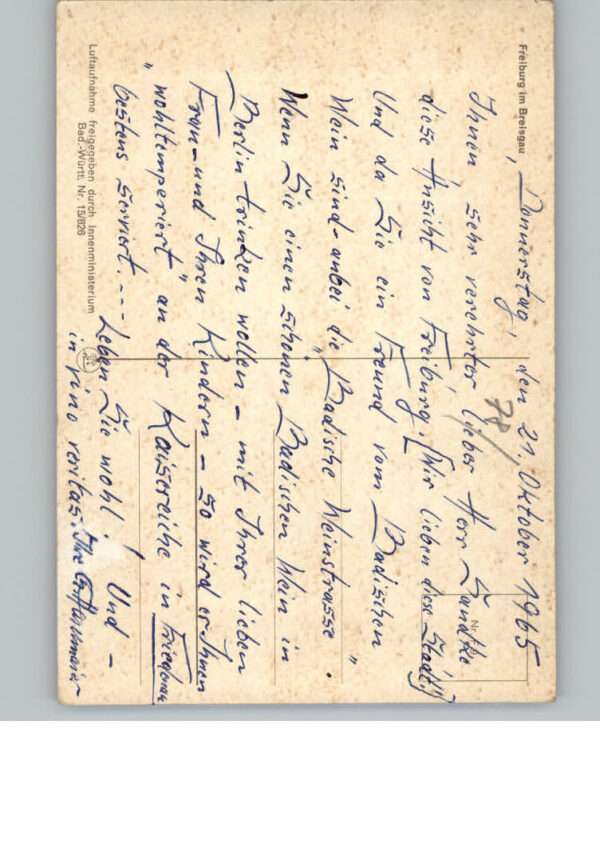 Freiburg im Breisgau
, Donnerstag, den 21. Oktober 1965
Ihnen sehr verehrter lieber Herr Sandtke
diese Ansicht von Freiburg. [Wir lieben diese Stadt!]
Und da Sie ein Freund vom Badischen
Wein sind - anbei die "Badische Weinstrasse".
Wenn Sie einen schönen Badischen Wein in
Berlin trinken wollen - mit Ihrer lieben
Frau - und Ihren Kindern - so wird er Ihnen
"wohltemperiert" an der Kaisereiche in Friedenau
bestens serviert....
Leben Sie wohl! Und -
in vino veritas. Ihre
78
Nr.
Luftaufnahme freigegeben durch Innenministerium
Bad.-Württ. Nr. 15/826